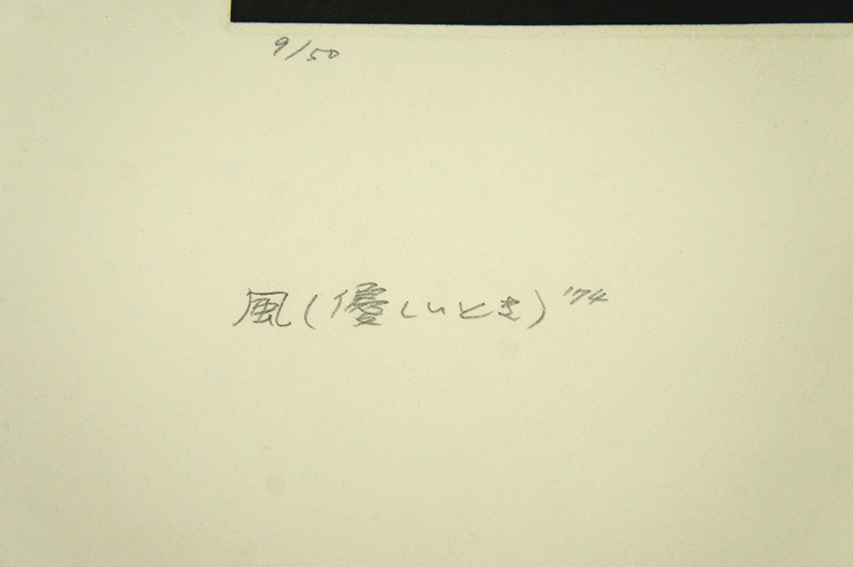 9/50
風(優しいとき)'74